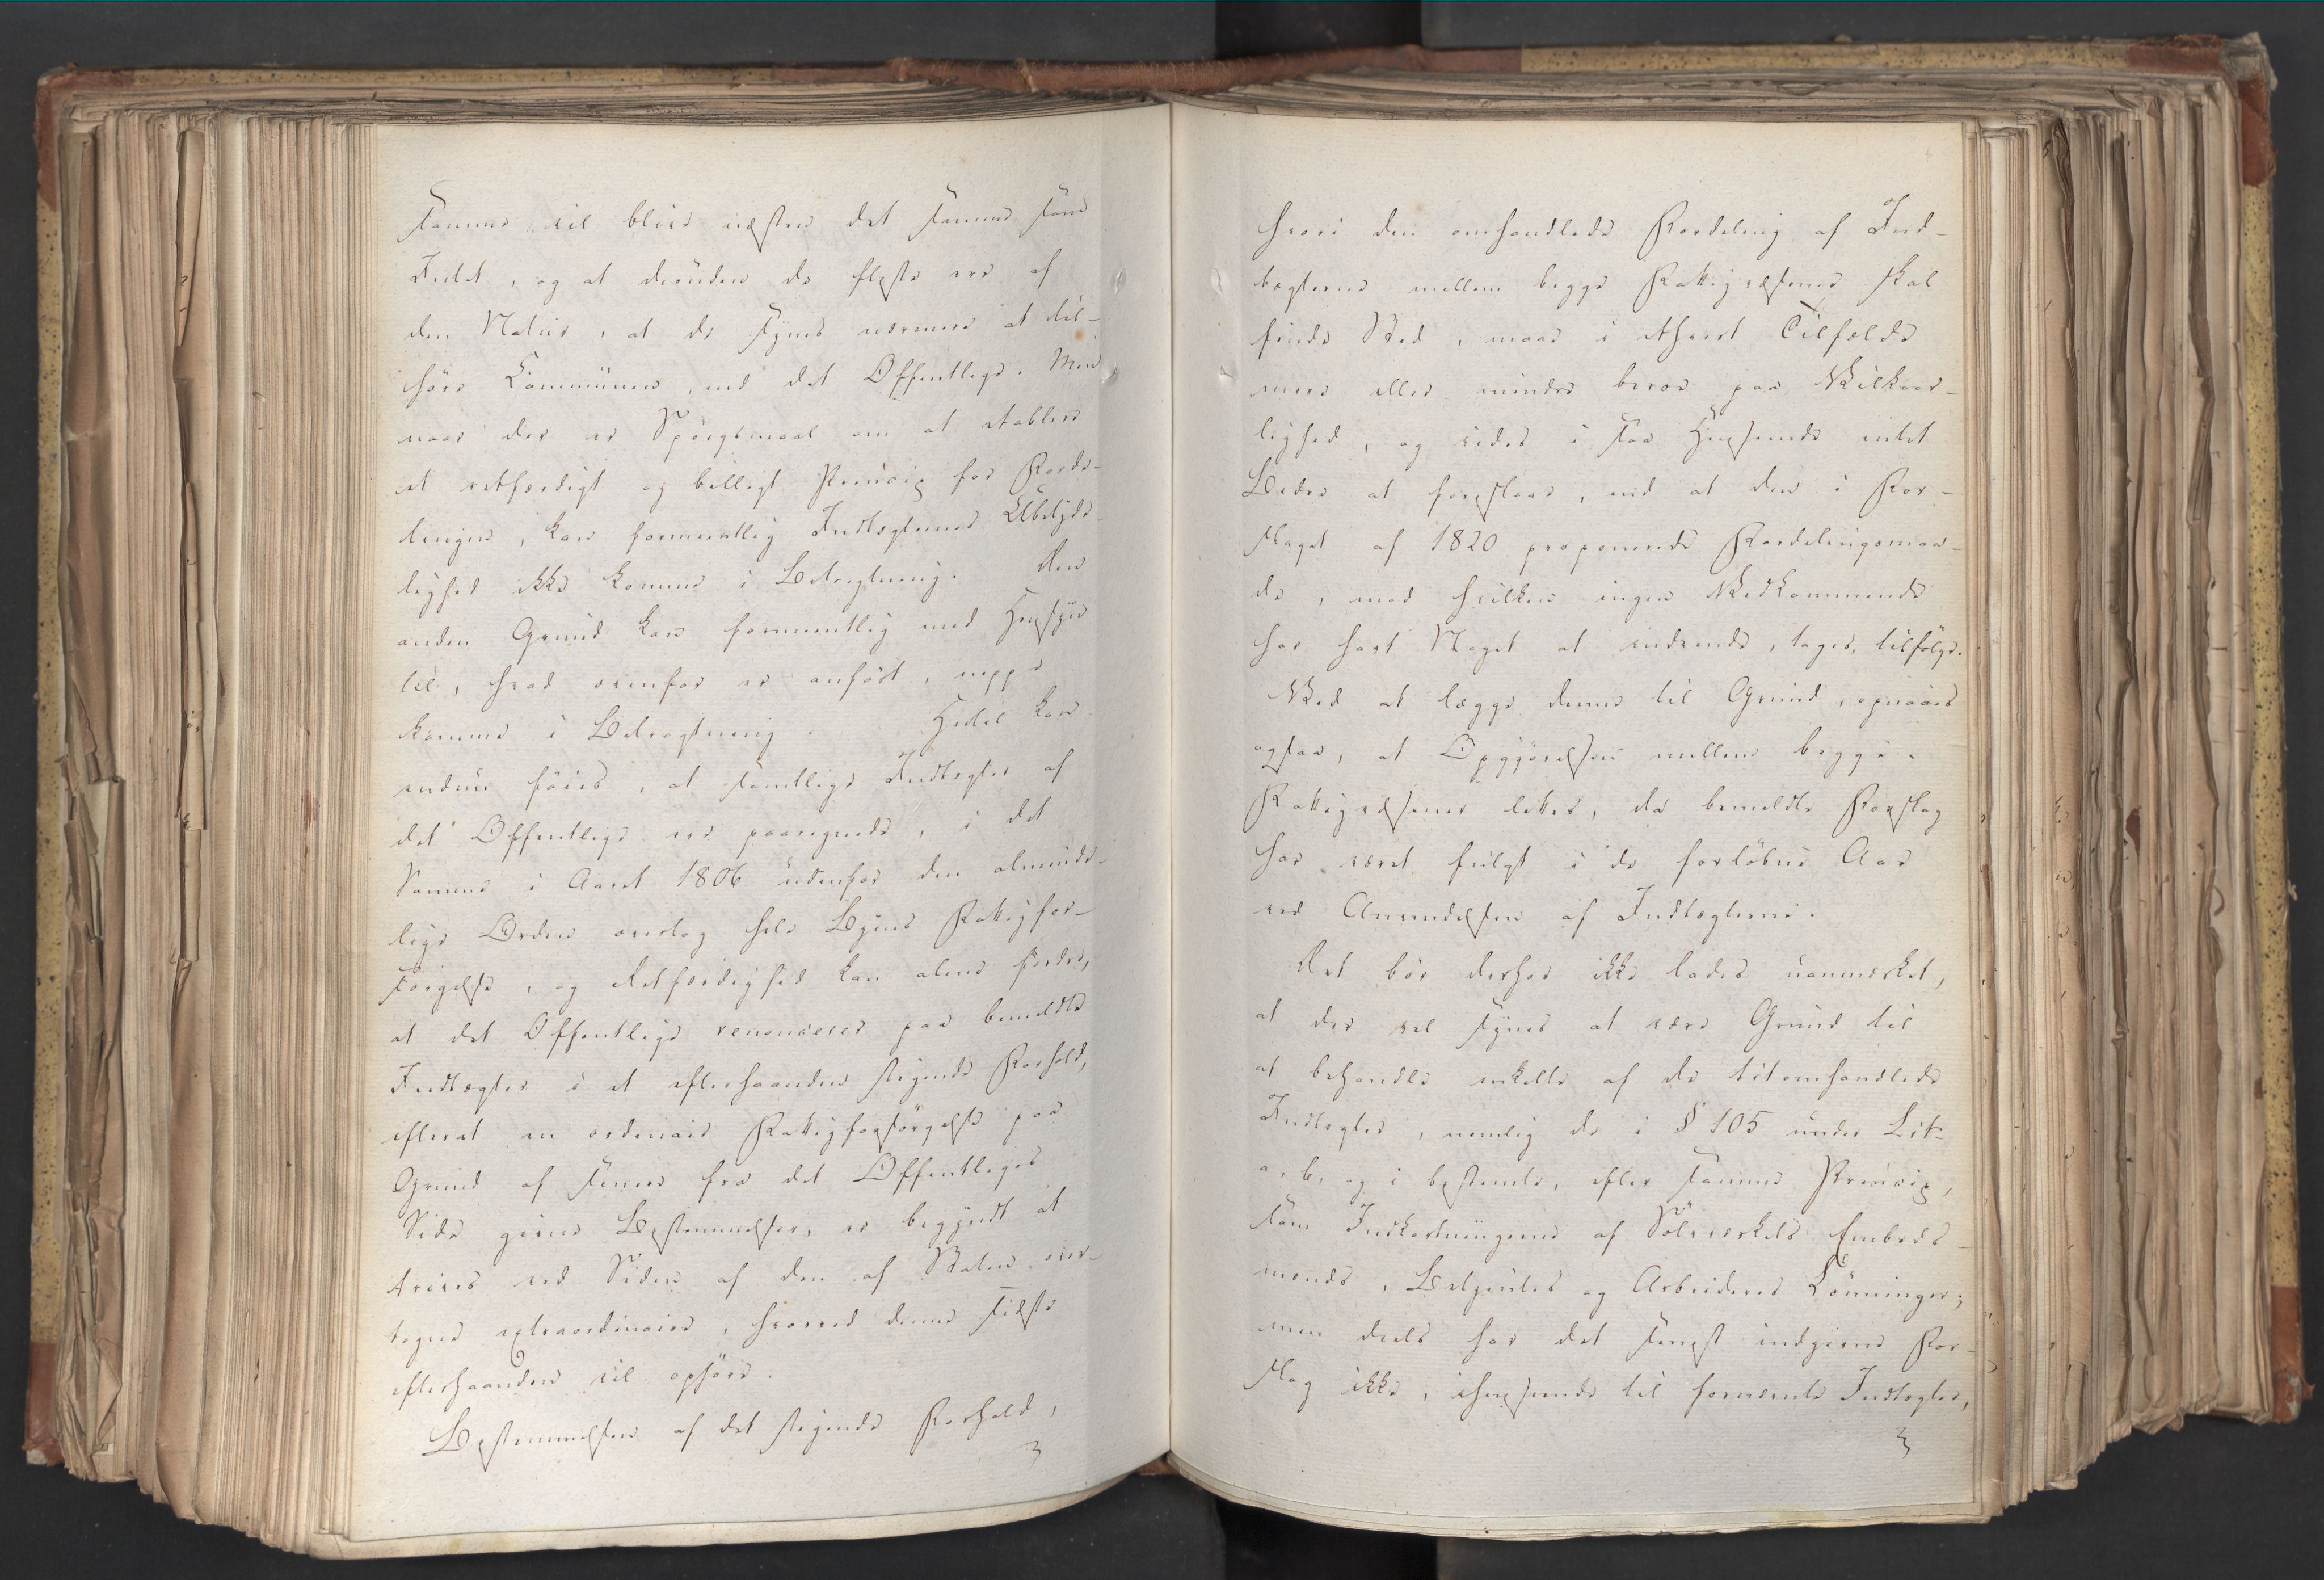 samme vil blive næsten det samme som
Intet, og at desuden de fleste ere af
den Natur, at de synes nærmere at til-
høre Communen, end det Offentlige. Men
naar der er Spørgsmaal om at etablere
et retfærdigt og billigt Princip for Forde-
lingen, kan formeentlig Indtægternes Ubetyde-
lighed ikke komme i Betragtning. Den
anden Grund kan formeentlig med Hensyn
til, hvad ovenfor er anført, neppe
komme i Betragtning. Hertil kan
endnu føies, at samtlige Indtægter af
det Offentlige ere paaregnede, i det
Samme i Aaret 1806 udenfor den alminde-
lige Orden overtog hele Byens Fattigfor-
sørgelse, og Retfærdighed kan alene fordre,
at det Offentlige renoncerer paa bemeldte
Indtægter i et efterhaanden stigende Forhold,
efterat en ordinair Fattigforsørgelse paa
Grund af senere fra det Offentliges
Side givne Bestemmelser, er begyndt at
trives ved Siden af den af Staten over-
tagne extraordinaire, hvorved denne sidste
efterhaanden vil ophøre.
Bestemmelsen af det stigende Forhold,
hvori den omhandlede Fordeling af Ind-
tægterne mellem begge Fattigvæsener skal
finde Sted, maae i ethvert Tilfælde
meer eller mindre beroe paa Vilkaar-
lighed, og vides i saa Henseende intet
Bedre at foreslaae, end at den i For-
slaget af 1820 proponerede Fordelingsmaa-
de, mod hvilken ingen Vedkommende
har havt Noget at indvende, tages tilfølge.
Ved at lægge denne til Grund, opnaaes
ogsaa, at Opgjørelsen mellem begge
Fattigvæsener lettes, da bemeldte Forslag
har været fulgt i de forløbne Aar
ved Anvendelsen af Indtægterne.
Det bør derhos ikke lades uanmærket,
at der vel synes at være Grund til
at behandle enkelte af de titomhandlede
Indtægter, nemlig de i § 105 under Litr
a, b, og i bestemte, efter samme Princip,
som Indkortningerne af Sölvværkets Embeds-
mænds, Betjentes og Arbeideres Lønninger;
men deels har det senest indgivne For-
slag ikke, ihenseende til fornævnte Indtægter,